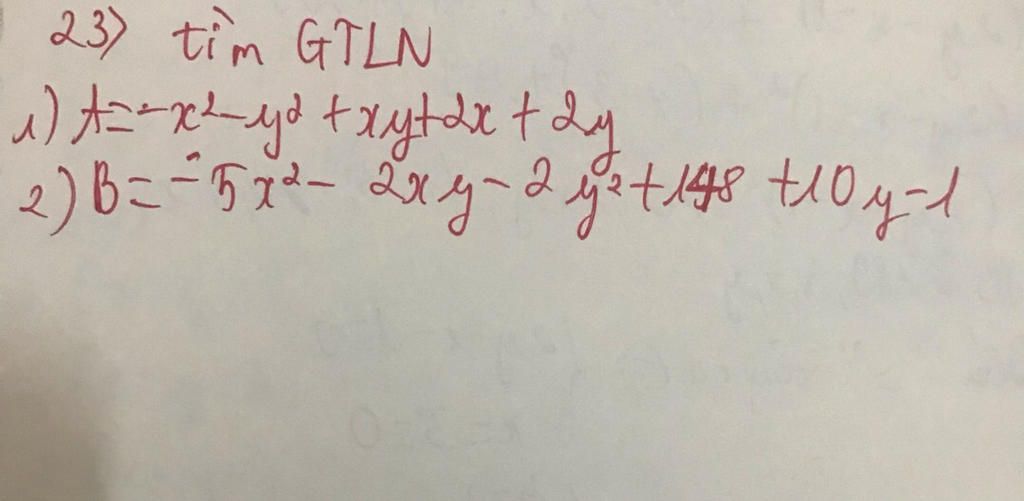 23) tìm GTLN
1) A = -x² - y² + xy + 2x + 2y
2) B = -5x² - 2xy - 2y² + 148 + 10y - 1